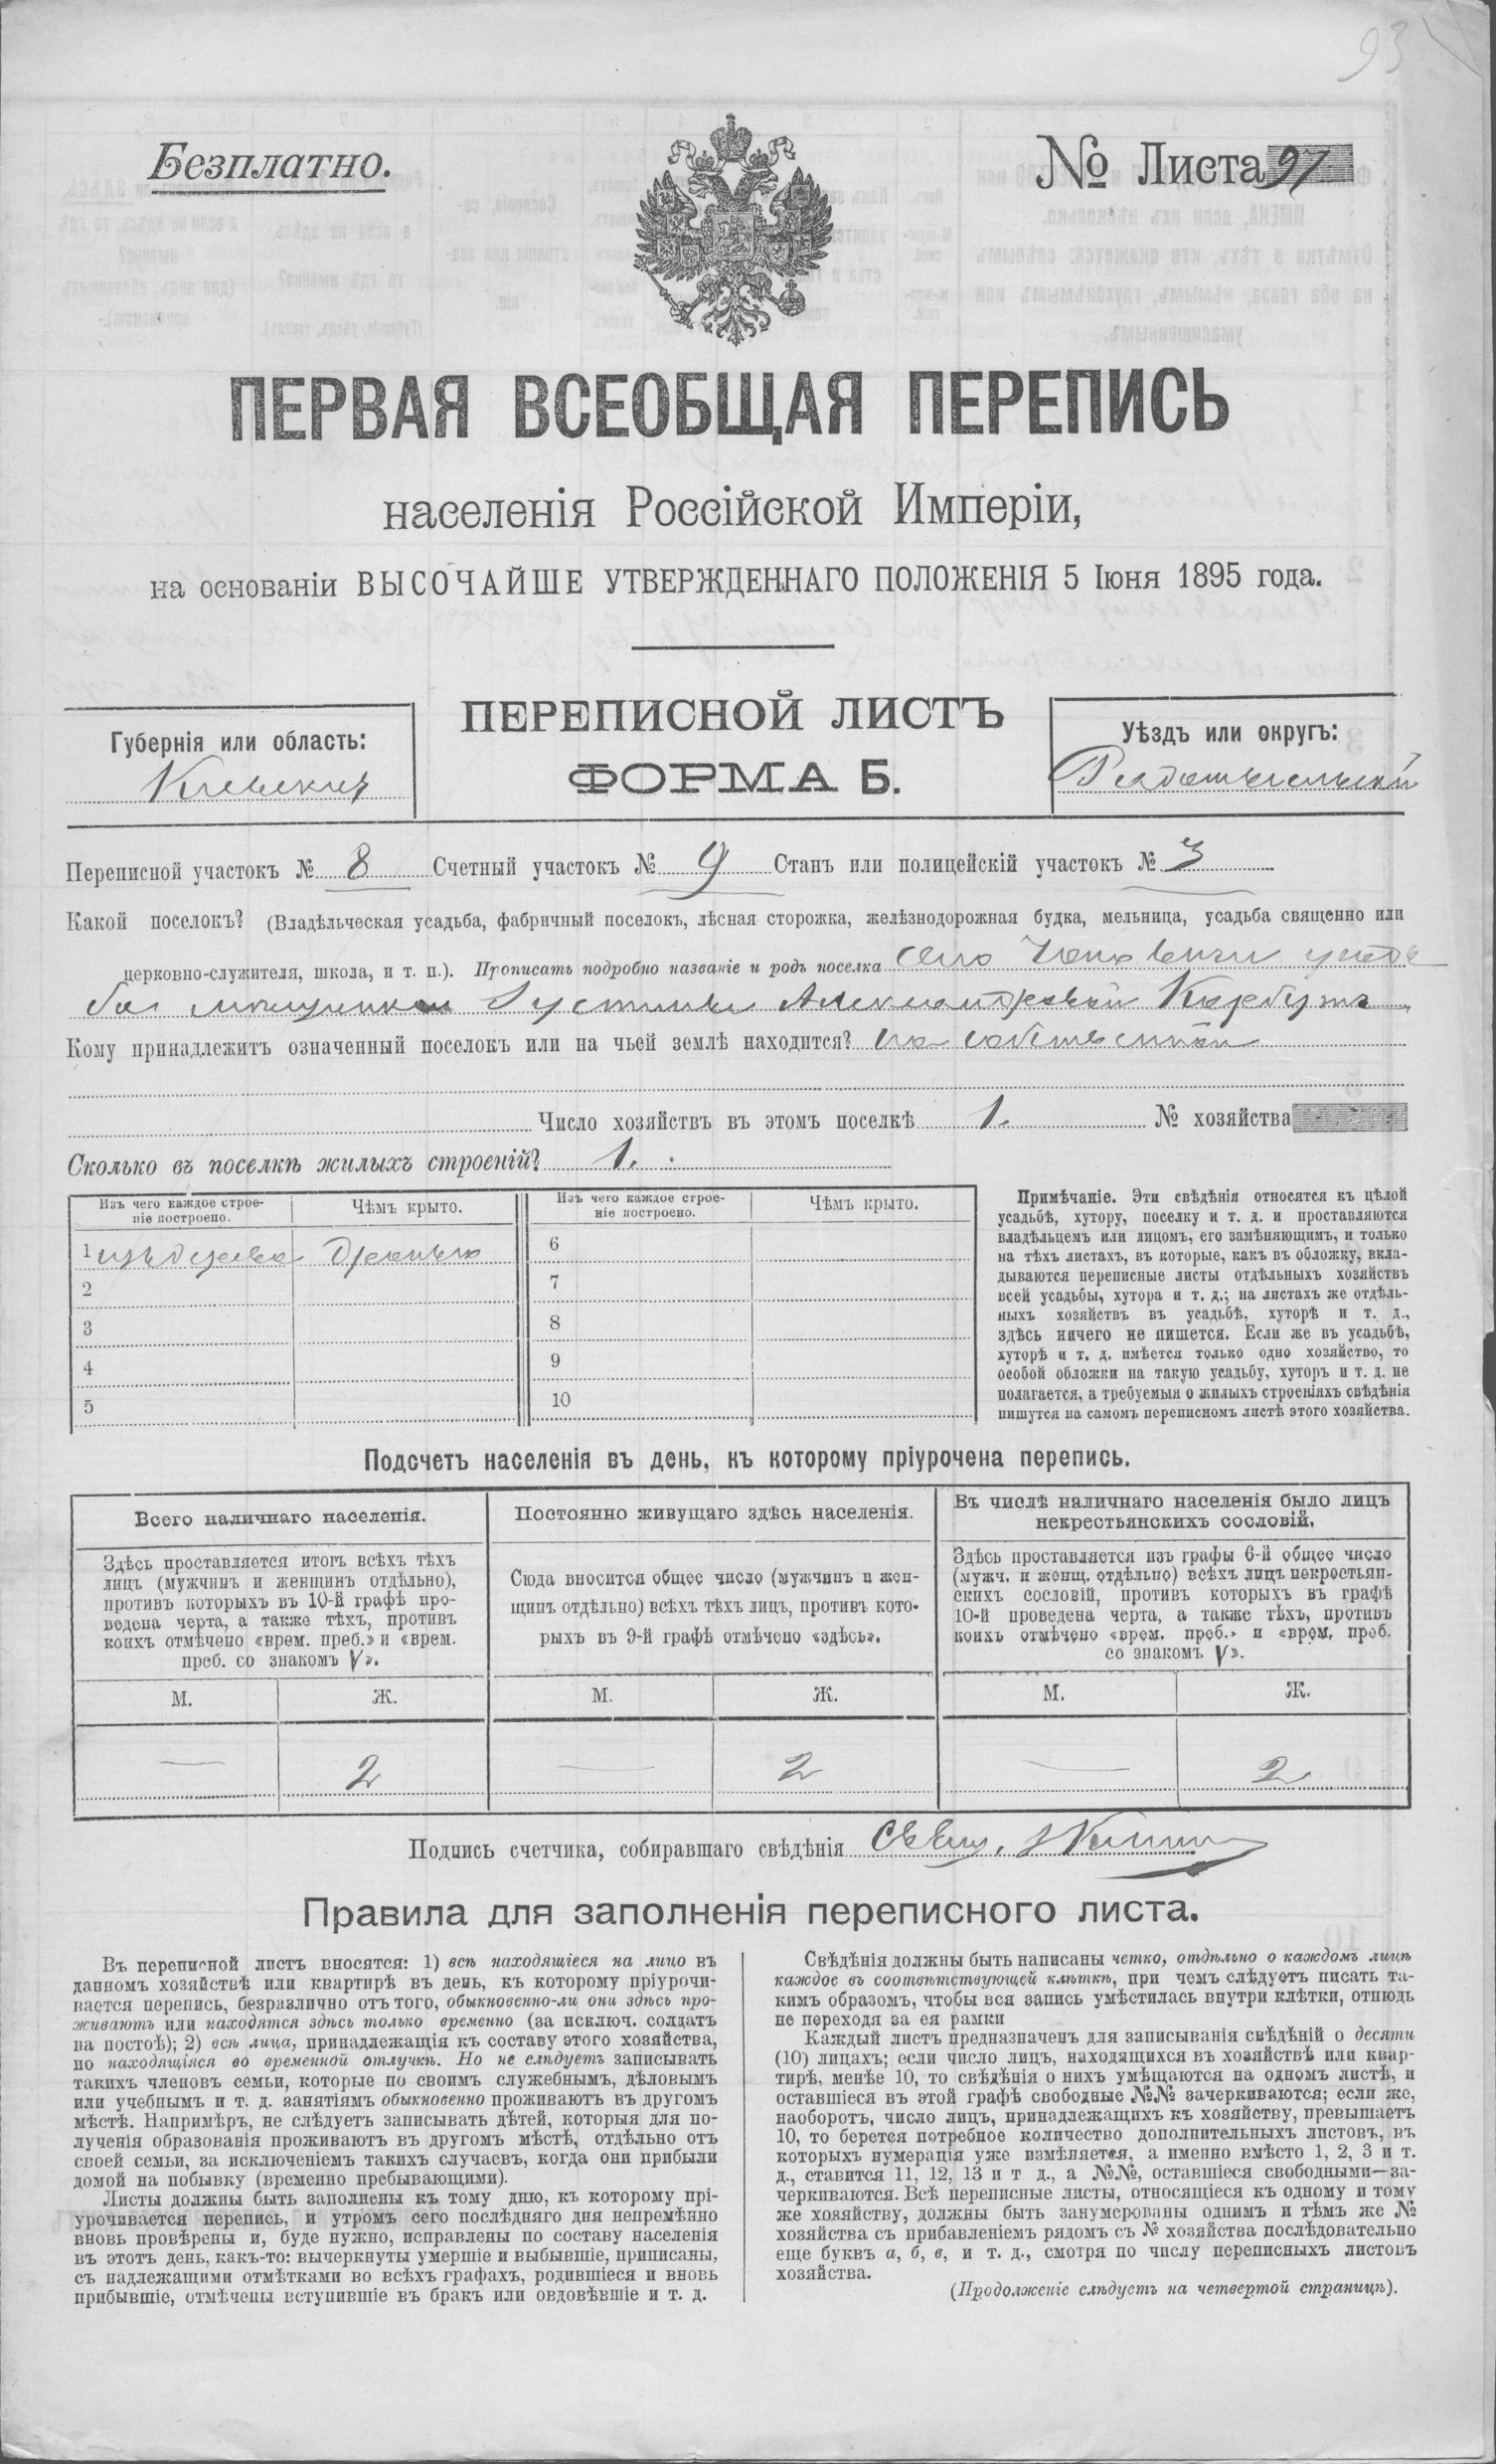 93
Безплатно.
№ Листа 97
ПЕРВАЯ ВСЕОБЩАЯ ПЕРЕПИСЬ
населенія Россійской Имперіи,
на основаніи ВЫСОЧАЙШЕ УТВЕРЖДЕННАГО ПОЛОЖЕНІЯ 5 Іюня 1895 года.
ПЕРЕПИСНОЙ ЛИСТЪ
ФОРМА Б.
Губернія или область:
Кіевская
Уѣздъ или округъ:
Радомысльскій
Переписной участокъ № 8 Счетный участокъ № 9 Станъ или полицейскій участокъ № 3
Какой поселокъ? (Владѣльческая усадьба, фабричный поселокъ, лѣсная сторожка, желѣзнодорожная будка, мельница, усадьба священно или
церковно-служителя, школа, и т. п.). Прописать подробно названіе и родъ поселка село усадь
ба Александровой
Кому принадлежитъ означенный поселокъ или на чьей землѣ находится? на собственной
Число хозяйствъ въ этомъ поселкѣ 1. № хозяйства
Сколько въ поселкѣ жилыхъ строеній? 1.
Изъ чего каждое строе-
ніе построено.
Чѣмъ крыто.
Изъ чего каждое строе-
ніе построено.
Чѣмъ крыто.
1 изъ дерева дранью
2
3
4
5
6
7
8
9
10
Примѣчаніе. Эти свѣдѣнія относятся къ цѣлой
усадьбѣ, хутору, поселку и т. д. и проставляются
владѣльцемъ или лицомъ, его замѣняющимъ, и только
на тѣхъ листахъ, въ которые, какъ въ обложку, вкла-
дываются переписные листы отдѣльныхъ хозяйствъ
всей усадьбы, хутора и т. д.; на листахъ же отдѣль-
ныхъ хозяйствъ въ усадьбѣ, хуторѣ и т. д.,
здѣсь ничего не пишется. Если же въ усадьбѣ,
хуторѣ и т. д. имѣется только одно хозяйство, то
особой обложки на такую усадьбу, хуторъ и т. д. не
полагается, а требуемыя о жилыхъ строеніяхъ свѣдѣнія
пишутся на самомъ переписномъ листѣ этого хозяйства.
Подсчетъ населенія въ день, къ которому пріурочена перепись.
Всего наличнаго населенія.
Здѣсь проставляется итогъ всѣхъ тѣхъ
лицъ (мужчинъ и женщинъ отдѣльно),
противъ которыхъ въ 10-й графѣ про-
ведена черта, а также тѣхъ, противъ
коихъ отмѣчено «врем. преб.» и «врем.
преб. со знакомъ V».
Постоянно живущаго здѣсь населенія.
Сюда вносится общее число (мужчинъ и жен-
щинъ отдѣльно) всѣхъ тѣхъ лицъ, противъ кото-
рыхъ въ 9-й графѣ отмѣчено «здѣсь».
Въ числѣ наличнаго населенія было лицъ
некрестьянскихъ сословій.
Здѣсь проставляется изъ графы 6-й общее число
(мужч. и женщ. отдѣльно) всѣхъ лицъ некрестьян-
скихъ сословій, противъ которыхъ въ графѣ
10-й проведена черта, а также тѣхъ, противъ
коихъ отмѣчено «врем. преб.» и «врем. преб.
со знакомъ V».
М. Ж. М. Ж. М. Ж.
— 2 — 2 — 2
Подпись счетчика, собиравшаго свѣдѣнія Свящ.
Правила для заполненія переписного листа.
Въ переписной листъ вносятся: 1) всѣ находящіеся на лицо въ
данномъ хозяйствѣ или квартирѣ въ день, къ которому пріурочи-
вается перепись, безразлично отъ того, обыкновенно-ли они здѣсь про-
живаютъ или находятся здѣсь только временно (за исключ. солдатъ
на постоѣ); 2) всѣ лица, принадлежащія къ составу этого хозяйства,
но находящіяся во временной отлучкѣ. Но не слѣдуетъ записывать
такихъ членовъ семьи, которые по своимъ служебнымъ, дѣловымъ
или учебнымъ и т. д. занятіямъ обыкновенно проживаютъ въ другомъ
мѣстѣ. Напримѣръ, не слѣдуетъ записывать дѣтей, которыя для по-
лученія образованія проживаютъ въ другомъ мѣстѣ, отдѣльно отъ
своей семьи, за исключеніемъ такихъ случаевъ, когда они прибыли
домой на побывку (временно пребывающими).
Листы должны быть заполнены къ тому дню, къ которому прі-
урочивается перепись, и утромъ сего послѣдняго дня непремѣнно
вновь провѣрены и, буде нужно, исправлены по составу населенія
въ этотъ день, какъ-то: вычеркнуты умершіе и выбывшіе, приписаны,
съ надлежащими отмѣтками во всѣхъ графахъ, родившіеся и вновь
прибывшіе, отмѣчены вступившіе въ бракъ или овдовѣвшіе и т. д.
Свѣдѣнія должны быть написаны четко, отдѣльно о каждомъ лицѣ
каждое въ соотвѣтствующей клѣткѣ, при чемъ слѣдуетъ писать та-
кимъ образомъ, чтобы вся запись умѣстилась внутри клѣтки, отнюдь
не переходя за ея рамки
Каждый листъ предназначенъ для записыванія свѣдѣній о десяти
(10) лицахъ; если число лицъ, находящихся въ хозяйствѣ или квар-
тирѣ, менѣе 10, то свѣдѣнія о нихъ умѣщаются на одномъ листѣ, и
оставшіеся въ этой графѣ свободные №№ зачеркиваются; если же,
наоборотъ, число лицъ, принадлежащихъ къ хозяйству, превышаетъ
10, то берется потребное количество дополнительныхъ листовъ, въ
которыхъ нумерація уже измѣняется, а именно вмѣсто 1, 2, 3 и т.
д., ставится 11, 12, 13 и т д., а №№, оставшіеся свободными—за-
черкиваются. Всѣ переписные листы, относящіеся къ одному и тому
же хозяйству, должны быть занумерованы однимъ и тѣмъ же №
хозяйства съ прибавленіемъ рядомъ съ № хозяйства послѣдовательно
еще буквъ а, б, в, и т. д., смотря по числу переписныхъ листовъ
хозяйства.
(Продолженіе слѣдуетъ на четвертой страницѣ).